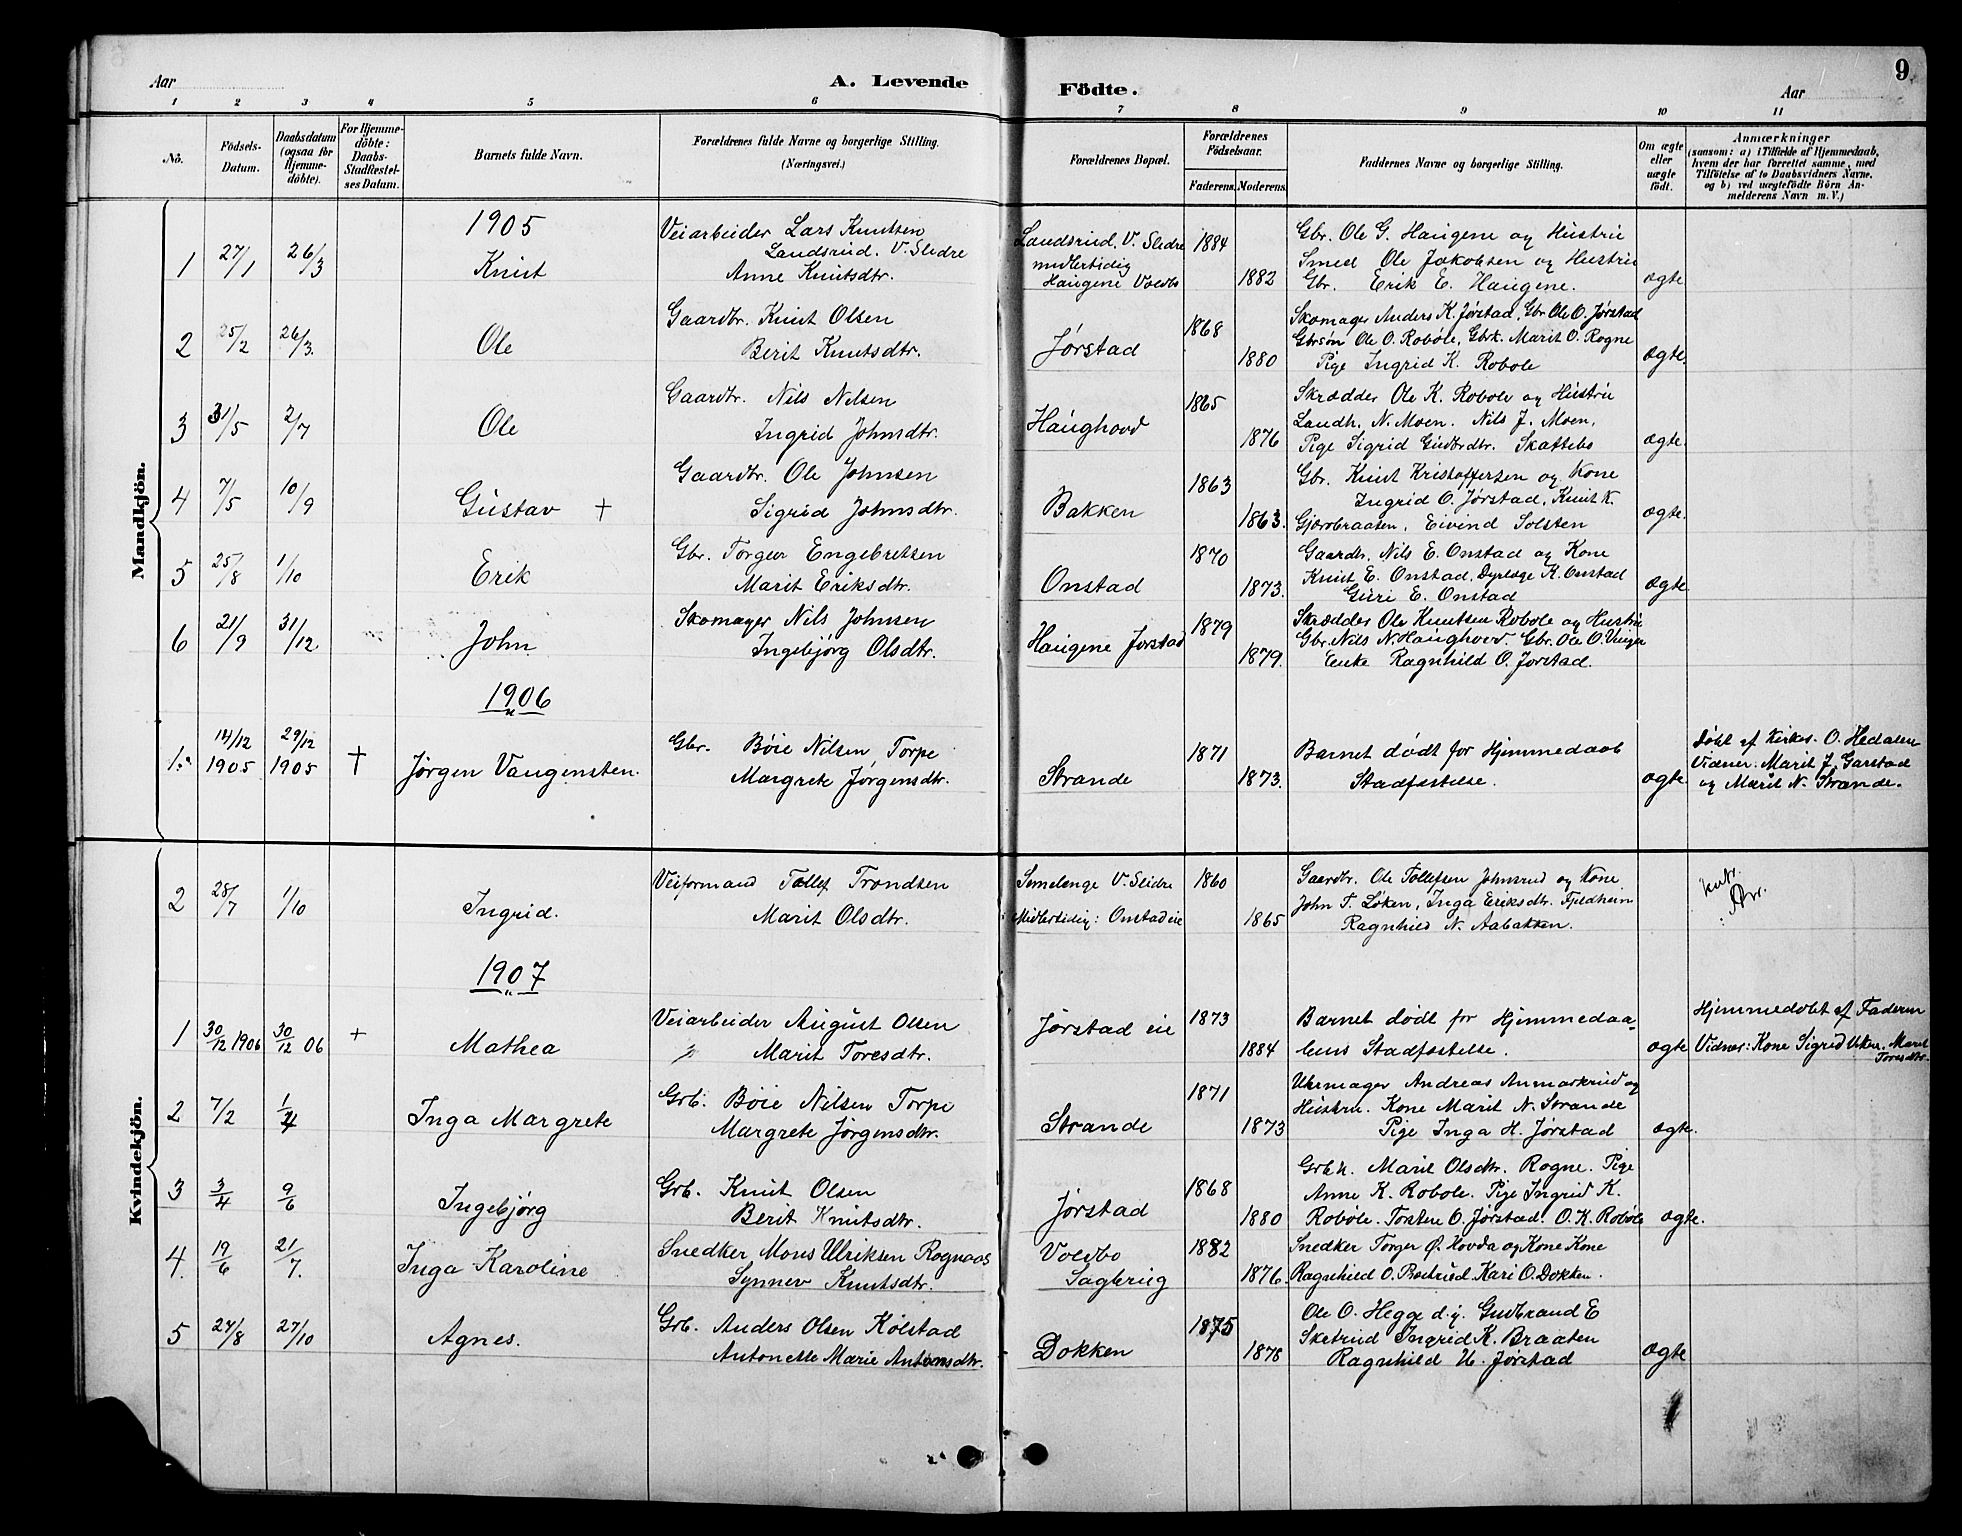 Aar
A. Levende
Födte.
Aar
9
1 2 3 4 5 6 7 8 9 10 11
No.
Födsels-Datum.
Daabsdatum (ogsaa for Hjemme-döbte).
For Hjemme-döbte: Daabs-Stadfæstel-ses Datum.
Barnets fulde Navn.
Forældrenes fulde Navne og borgerlige Stilling. (Næringsvei.)
Forældrenes Bopæl.
Forældrenes Födselsaar.
Faderens. Moderens.
Faddernes Navne og borgerlige Stilling.
Om ægte eller uægte födt.
Anmærkninger
(saasom: a) i Tilfælde af Hjemmedaab,
hvem der har forrettet samme, med
Tilföielse af to Daabsvidners Navne,
og b) ved uægtefödte Börn An-
melderens Navn m. V.)
Mandkjön.
1905
1 27/1 26/3 Knut
Veiarbeider Lars Knutsen
Landsrud. V. Slidre
Anne Knutsdtr.
Landsrud, V. Slidre
midlertidig
Haugene Voldbo
1884
1882
Gbr. Ole G. Haugene og Hustru
Smed Ole Jakobsen og Hustru
Gbr. Erik E. Haugene.
ægte
2 25/2 26/3. Ole
Gaardbr. Knut Olsen
Berit Knutsdtr.
Jørstad
1868
1880
Skomager Anders K. Jørstad, Gbr Ole O. Jørstad
Gbrsøn Ole O. Robøle, Gbrk. Marit O. Rogne
Pige Ingrid K. Robole
ægte.
3 31/5 2/7 Ole
Gaardbr. Nils Nilsen
Ingrid Johnsdtr.
Haughovd
1865
1876
Skrædder Ole K. Robole og Hustru
Landh. N. Moen. Nils J. Moen,
Pige Sigrid Gudbrdtr. Skattebo
ægte.
4 7/5 10/9 Gustav +
Gaardbr. Ole Johnsen
Sigrid Johnsdtr.
Bakken
1863
1863.
Gbr. Knut Kristoffersen og Kone
Ingrid O. Jørstad, Knut K.
Gjærbraaten, Eivind Solsten
ægte.
5 25/8 1/10 Erik
Gbr. Torger Engebretsen
Marit Eriksdtr.
Onstad
1870
1873.
Gaardbr. Nils E. Onstad og Kone
Knut E. Onstad, Dyrlæge K. Onstad
Guri E. Onstad
ægte
6 21/9 31/12. John
Skomager Nils Johnsen
Ingebjörg Olsdtr.
Haugene Jørstad
1879
1879.
Skrædder Ole Knutsen Robole og Hustru
Gbr. Nils N Haughovd Gbr. Ole O.
Enke Ragnhild O. Jorstad.
1906
1. 14/12 1905 29/12 1905 † Jörgen Vangensten.
Gbr. Böie Nilsen Torpe
Margrete Jørgensdtr.
Strande
1871
1873.
Barnet dødt før Hjemmedaab
Stadfæstelse.
ægte
Døbt af Kirkes. O. Hedalen
Vidner. Marit J. Garstad
og Marit N. Strande.
Kvindekjön.
2 28/7 1/10 Ingrid.
Veiformand Tollef Trondsen
Marit Olsdtr.
Semelenge V. Slidre
Midlertidig: Onstad eie
1860
1865
Gaardbr. Ole Tollefsen Johnsrud og Kone
John T. Løken, Inga Eriksdtr. Fjeldheim
Ragnhild N. Aabakken.
1907
1 30/12 1906 30/12 06 + Mathea
Veiarbeider August Olsen
Marit Toresdtr.
Jørstad eie
1873
1884
Barnet dødt før Hjemmedaa-
bens Stadfæstelse.
ægte
Hjemmedøbt af Faderen
Vidner: Kone Sigrid Uken. Marit
Toresdtr.
2 7/2 1/4 Inga Margrete
Grb. Böie Nilsen Torpe
Margrete Jørgensdtr.
Strande
1871
1873
Uhrmager Andreas Anmarkrud og
Hustru. Kone Marit N. Strande
Pige Inga H. Jørstad
ægte.
3 3/4 9/6 Ingebjørg
Grb. Knut Olsen
Berit Knutsdtr.
Jørstad
1868
1880
Grb k. Marit Olsdtr. Rogne. Pige
Anne K. Robole. Pige Ingrid K.
Robøle. Torsten O. Jørstad. O. K. Robøle
ægte.
4. 19/6 21/7. Inga Karoline
Snedker Mons Ulriksen Rognaas
Synnev Knutsdtr.
Voldbo
Sagbrug
1882
1876.
Snedker Torger Ø. Hovda og Kone Kone
Ragnhild O. Bøtrud. Kari O. Dokken.
5 24/8 27/10 Agnes.
Grb. Anders Olsen Kölstad
Antonette Marie Antonsdtr.
Dokken
1875
1878
Ole O. Hegge d.y. Gudbrand E
Sketrud Ingrid K. Braaten
Ragnhild U. Jørstad
ægte